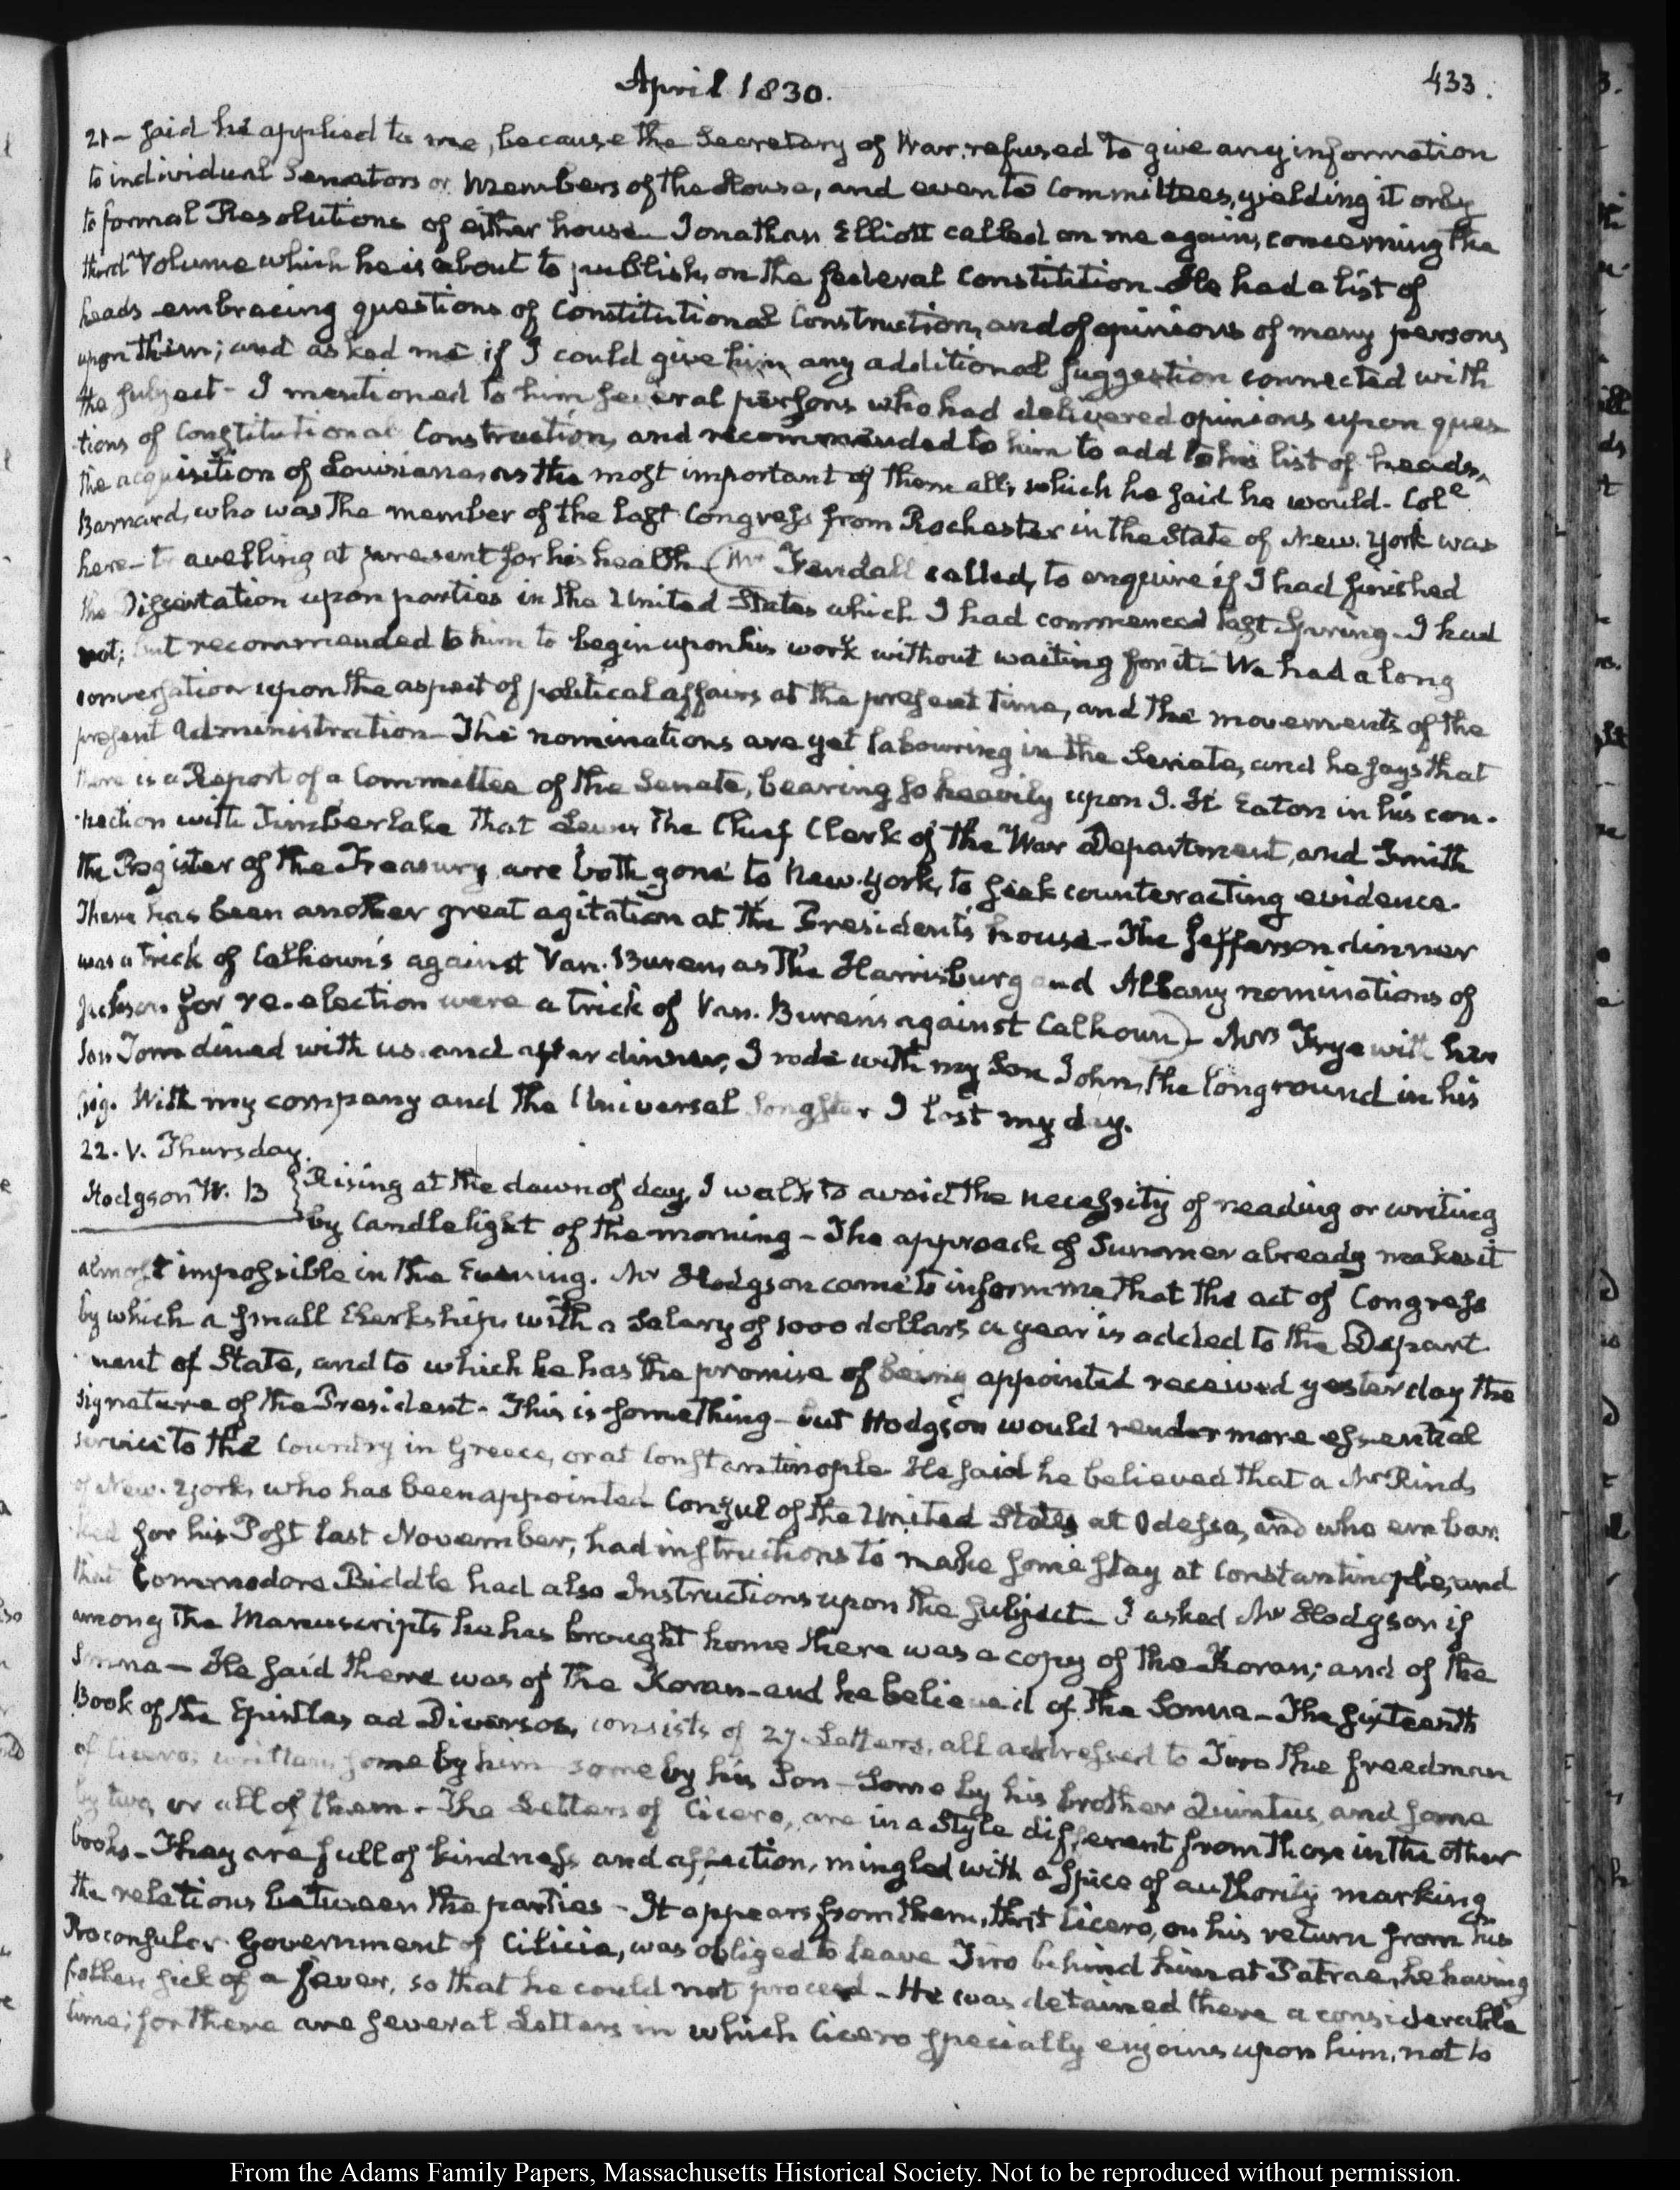 April 1830.
433.
21— said he applied to me, because the Secretary of War refused to give any information
to individual Senators or Members of the House, and even to Committees, yielding it only
to formal Resolutions of either house— Jonathan Elliott called on me again, concerning the
third Volume which he is about to publish, on the federal Constitution— He had a list of
heads embracing questions of Constitutional Construction, and of opinions of many persons
upon them; and asked me if I could give him any additional suggestion connected with
the subject— I mentioned to him several persons who had delivered opinions upon ques
tions of Constitutional Construction, and recommended to him to add to his list of heads,
the acquisition of Louisiana, as the most important of them all; which he said he would. Col.e
Barnard, who was the member of the last Congress from Rochester in the State of New-York was
here— travelling at present for his health— (Mr Fendall called, to enquire if I had finished
the Dissertation upon parties in the United States which I had commenced last Spring— I had
not; but recommended to him to begin upon his work without waiting for it— We had a long
conversation upon the aspect of political affairs at the present time, and the movements of the
present Administration— The nominations are yet labouring in the Senate, and he says that
there is a Report of a Committee of the Senate, bearing so heavily upon J. H. Eaton in his con-
nection with Timberlake that Lewis the Chief Clerk of the War Department, and Smith
the Register of the Treasury, are both gone to New-York, to seek counteracting evidence.
There has been another great agitation at the President's house— The Jefferson dinner
was a trick of Calhoun's against Van-Buren, as the Harrisburg and Albany nominations of
Jackson for re-election were a trick of Van-Buren's against Calhoun)— Mrs Frye with her
son Tom dined with us and after dinner, I rode with my Son John, the long round in his
gig. With my company and the Universal Songster I lost my day.
22. V. Thursday.
Hodgson W. B
Rising at the dawn of day, I walk to avoid the necessity of reading or writing
by Candlelight of the morning— The approach of Summer already makes it
almost impossible in the Evening. Mr Hodgson came to inform me that the act of Congress
by which a small Clerkship with a Salary of 1000 dollars a year is added to the Depart
ment of State, and to which he has the promise of being appointed received yesterday the
signature of the President— This is something— but Hodgson would render more essential
service to the Country in Greece, or at Constantinople— He said he believed that a Mr Rind
of New-York, who has been appointed Consul of the United States at Odessa, and who embar
ked for his Post last November, had instructions to make some stay at Constantinople, and
that Commodore Biddle had also Instructions upon the subject— I asked Mr Hodgson if
among the Manuscripts he has brought home there was a copy of the Koran; and of the
Sunna— He said there was of the Koran— and he believed of the Sonna— The sixteenth
Book of the Epistles ad Diversos, consists of 27 Letters, all addressed to Tiro the freedman
of Cicero; written, some by him some by his Son— Some by his brother Quintus, and some
by two, or all of them— The Letters of Cicero, are in a Style different from those in the other
books— They are full of kindness and affection, mingled with a spice of authority marking
the relations between the parties— It appears from them, that Cicero, on his return from his
Proconsular Government of Cilicia, was obliged to leave Tiro behind him at Patrae, he having
fallen sick of a fever, so that he could not proceed— He was detained there a considerable
time; for there are several Letters in which Cicero specially enjoins upon him, not to
From the Adams Family Papers, Massachusetts Historical Society. Not to be reproduced without permission.